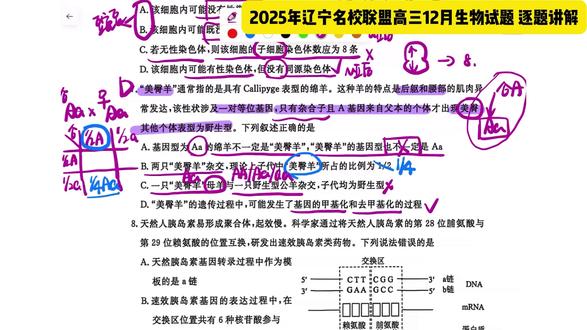 2025年辽宁名校联盟高三12月生物试题 逐题讲解
A. 该细胞内可能没有
B. 该细胞内可能
C. 若无性染色体，则该细胞的子细胞染色体数应为 8 条
→ 8.
D. 该细胞内可能有性染色体，但没有同源染色体
“美臀羊”通常指的是具有 Callipyge 表型的绵羊。这种羊的特点是后躯和腰部的肌肉异
常发达，该性状涉及一对等位基因，只有杂合子且 A 基因来自父本的个体才出现美臀
其他个体表型为野生型。下列叙述正确的是
A. 基因型为 Aa 的绵羊不一定是“美臀羊”，“美臀羊”的基因型也不一定是 Aa
B. 两只“美臀羊”杂交，理论上子代中“美臀羊”所占的比例为 1/2
1/4
C. 一只“美臀”母羊与一只野生型公羊杂交，子代均为野生型
D. “美臀羊”的遗传过程中，可能发生了基因的甲基化和去甲基化的过程
Aa × Aa
1/2A
1/2a
1/2A
1/2a
1/4Aa
Aa
8. 天然人胰岛素易形成聚合体，起效慢。科学家通过将天然人胰岛素的第 28 位脯氨酸与
第 29 位赖氨酸的位置互换，研发出速效胰岛素类药物。下列说法错误的是
A. 天然胰岛素基因转录过程中作为模
板的是 a 链
B. 速效胰岛素基因的表达过程中，在
交换区位置共有 6 种核苷酸参与
交换区
5′ CTT CGG 3′ a链
3′ GAA GCC 5′ b链
DNA
mRNA
赖氨酸 脯氨酸